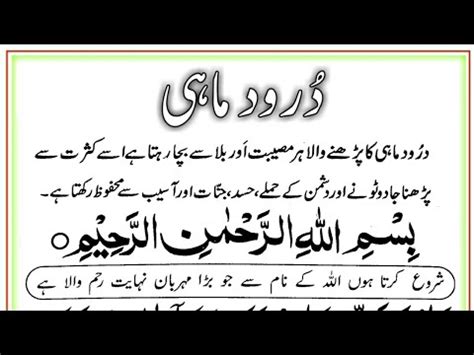 دُرود ماہی
درُود ماہی کا پڑھنے والا ہر مصیبت اَور بلا سے بچا رہتا ہے اسے کثرت سے
پڑھنا جادو ٹونے اور دشمن کے حملے، حسد، جنّات اور آسیب سے محفوظ رکھتا ہے۔
بِسْمِ اللهِ الرَّحْمٰنِ الرَّحِيْمِ
شروع کرتا ہوں اللہ کے نام سے جو بڑا مہربان نہایت رحم والا ہے